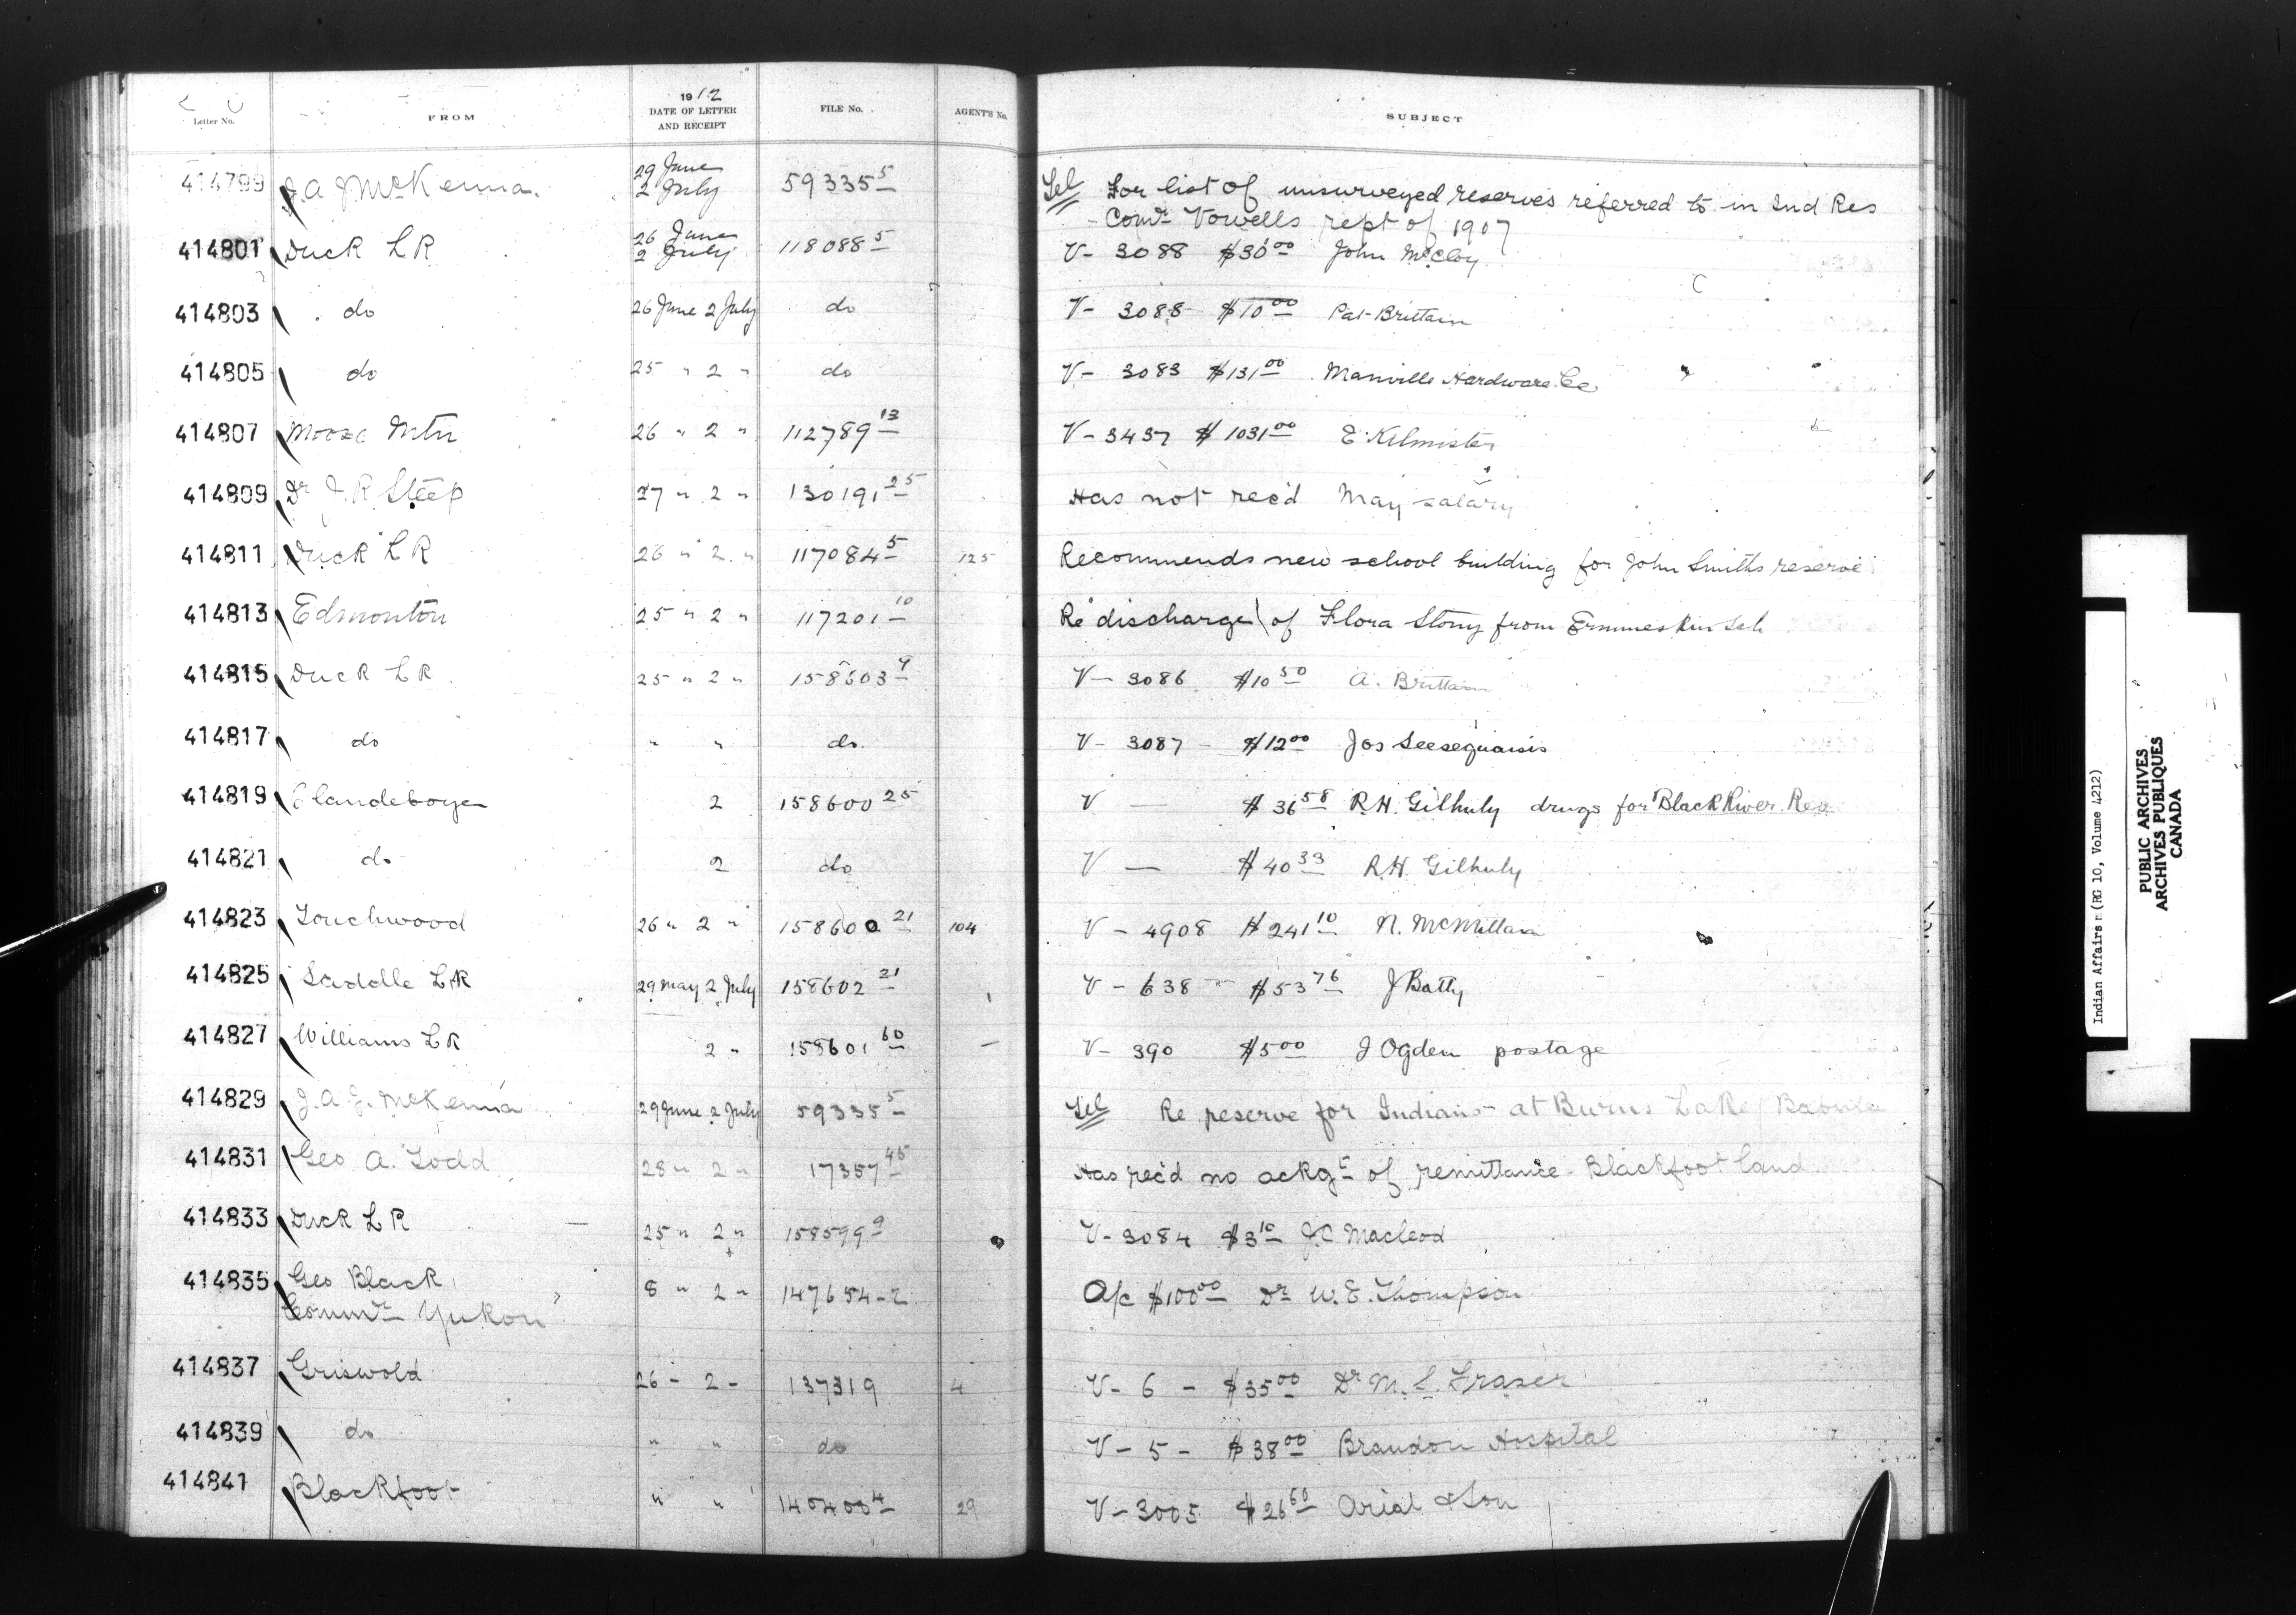 Letter No. FROM 1912 DATE OF LETTER AND RECEIPT FILE No. AGENT'S No. SUBJECT
414799 J. A. J McKenna. 29 June 2 July 59335 5 Tel For list of unsurveyed reserves referred to in Ind Res
Comr Vowells rept of 1907
414801 Duck LK 26 June 2 July 118088 5 V- 3088 $30 00 John McCloy
414803 do 26 June 2 July do V- 3088 $10 00 Pat Brittain
414805 do 25 " 2 " do V- 3083 $131 00 Manville Hardware Co
414807 Moose Mtn 26 " 2 " 112789 13 V- 3437 $1031 00 E. Kilmister
414809 Dr J. R Steep 27 " 2 " 130191 25 Has not rec'd May salary
414811 Duck LK 26 " 2 " 117084 5 125 Recommends new school building for John Smiths reserve
414813 Edmonton 25 " 2 " 117201 10 Re discharge of Flora Stony from Ermineskin Sch
414815 Duck LK 25 " 2 " 158603 9 V- 3086 $10 50 A. Brittain
414817 do " " do. V- 3087 - $12 00 Jos Seesequasis
414819 Clandeboye 2 158600 25 V — $36 58 R.H. Gilhuly drugs for Black River Res
414821 do 2 do V — $40 33 R.H. Gilhuly
414823 Touchwood 26 " 2 " 158600 21 104 V - 4908 $241 10 N. McMillan
414825 Saddle LK 29 May 2 July 158602 21 V - 638 - $53 76 J Batty
414827 Williams LK 2 " 158601 60 V- 390 $5 00 J Ogden postage
414829 J. A. J. McKenna 29 June 2 July 59335 5 Tel Re reserve for Indians at Burns Lake Babine
414831 Geo A. Todd 28 " 2 " 17357 45 Has rec'd no ackgt of remittance Blackfoot land
414833 Duck LK 25 " 2 " 158599 9 V- 3084 $3 10 J.C Macleod
414835 Geo Black 8 " 2 " 147654-2 A/c $100 00 Dr W. E. Thompson
Commr Yukon
414837 Griswold 26 - 2 - 137319 4 V- 6 - $35 00 Dr M. S. Fraser
414839 do " " do V- 5 - $38 00 Brandon Hospital
414841 Blackfoot " " 140400 4 29 V- 3005 $26 60 Arial & Son
Indian Affairs (RG 10, Volume 4212)
PUBLIC ARCHIVES
ARCHIVES PUBLIQUES
CANADA